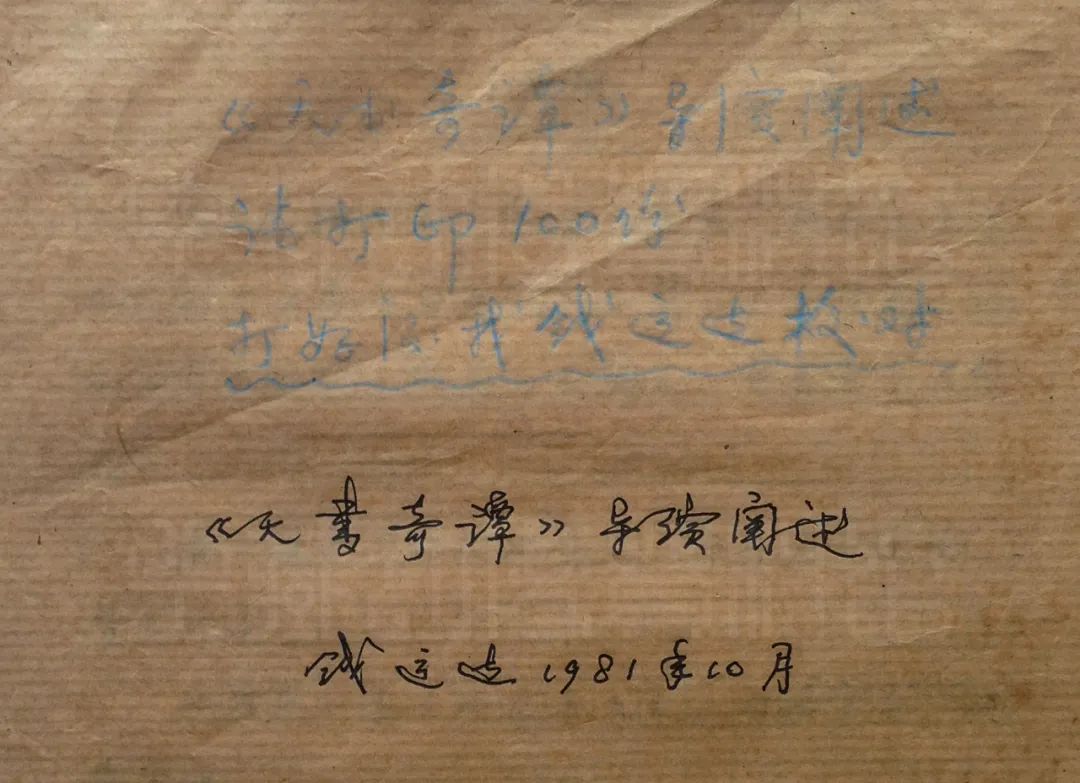 《天书奇谭》导演阐述
请打印100份
打好后我钱运达校对
《天書奇譚》导演阐述
钱运达1981年10月